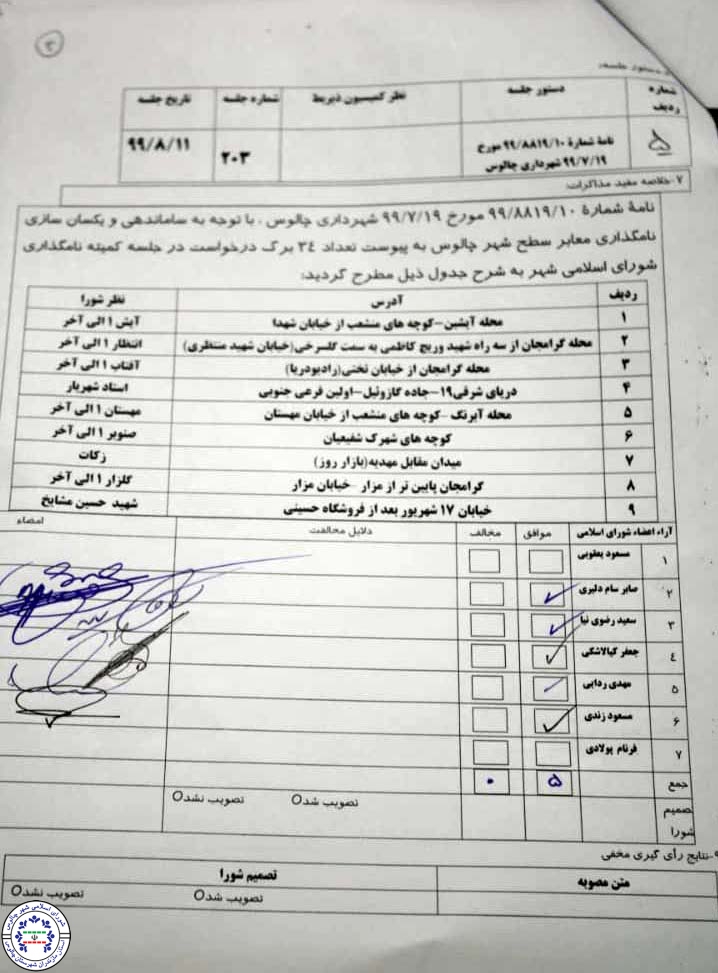 ۳
دستور جلسه:
شماره ردیف	دستور جلسه	نظر کمیسیون ذیربط	شماره جلسه	تاریخ جلسه
۵	نامهٔ شمارهٔ ۹۹/۸۸۱۹/۱۰ مورخ ۹۹/۷/۱۹ شهرداری چالوس		۲۰۳	۹۹/۸/۱۱
۷-خلاصه مفید مذاکرات:
نامهٔ شمارهٔ ۹۹/۸۸۱۹/۱۰ مورخ ۹۹/۷/۱۹ شهرداری چالوس ، با توجه به ساماندهی و یکسان سازی
نامگذاری معابر سطح شهر چالوس به پیوست تعداد ۳۴ برگ درخواست در جلسه کمیته نامگذاری
شورای اسلامی شهر به شرح جدول ذیل مطرح گردید:
ردیف	آدرس	نظر شورا
۱	محله آیشین-کوچه های منشعب از خیابان شهدا	آیش ۱ الی آخر
۲	محله گرامجان از سه راه شهید وریج کاظمی به سمت گلسرخی(خیابان شهید منتظری)	انتظار ۱ الی آخر
۳	محله گرامجان از خیابان تختی(رادیودریا)	آفتاب ۱ الی آخر
۴	دریای شرقی۱۹-جاده گازوئیل-اولین فرعی جنوبی	استاد شهریار
۵	محله آیرنگ -کوچه های منشعب از خیابان مهستان	مهستان ۱ الی آخر
۶	کوچه های شهرک شفیعیان	صنوبر ۱ الی آخر
۷	میدان مقابل مهدیه(بازار روز)	زکات
۸	گرامجان پایین تر از مزار -خیابان مزار	گلزار ۱ الی آخر
۹	خیابان ۱۷ شهریور بعد از فروشگاه حسینی	شهید حسین مشایخ
آراء اعضاء شورای اسلامی	موافق	مخالف	دلایل مخالفت	امضاء
۱	مسعود یعقوبی
۲	صابر سام دلیری
۳	سعید رضوی نیا
۴	جعفر کیالاشکی
۵	مهدی ردایی
۶	مسعود زندی
۷	فرنام پولادی
جمع	۵	۰
تصمیم شورا	تصویب شد	تصویب نشد
۹-نتایج رأی گیری مخفی
متن مصوبه	تصمیم شورا
تصویب شد	تصویب نشد
شورای اسلامی شهر چالوس
استان مازندران شهرستان چالوس